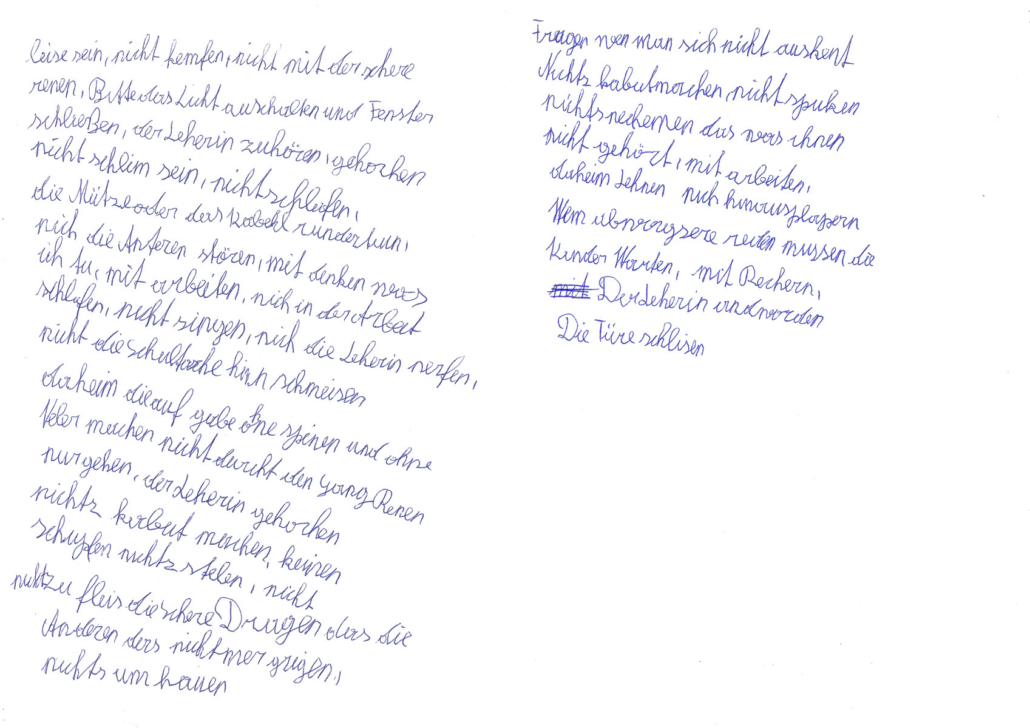 leise sein, nicht kemfen, nicht mit der schere
renen, Bitte das Licht auschalten und Fenster
schließen, der Leherin zuhören, gehorchen
nicht schlim sein, nicht schlafen,
die Mütze oder das Kabehl runder tun,
nich die Anteren stören, mit denken was
ich tu, mit arbeiten, nich in der Arbeit
schlafen, nicht singen, nich die Leherin nerfen,
nicht die Schultasche hinn schmeisen
daheim die auf gabe ohne spinen und ohne
Veler machen nicht durcht den gang Renen
nur gehen, der Leherin gehorchen
nichtz kabut machen, keinen
schupfen nichtz stelen, nicht
zu fleis die schere Dragen das die
Anderen das nicht mer grigen,
nichts um hauen
Fragen wen man sich nicht auskent
Nichtz kabutmachen, nicht spuken
nichts nechemen das was ihnen
nicht gehört, mit arbeiten,
daheim Lehnen nich hinausplapern
Wem reden mussen die
Kinder Warten, mit Rechern,
Der Leherin andworden
Die Türe schlisen